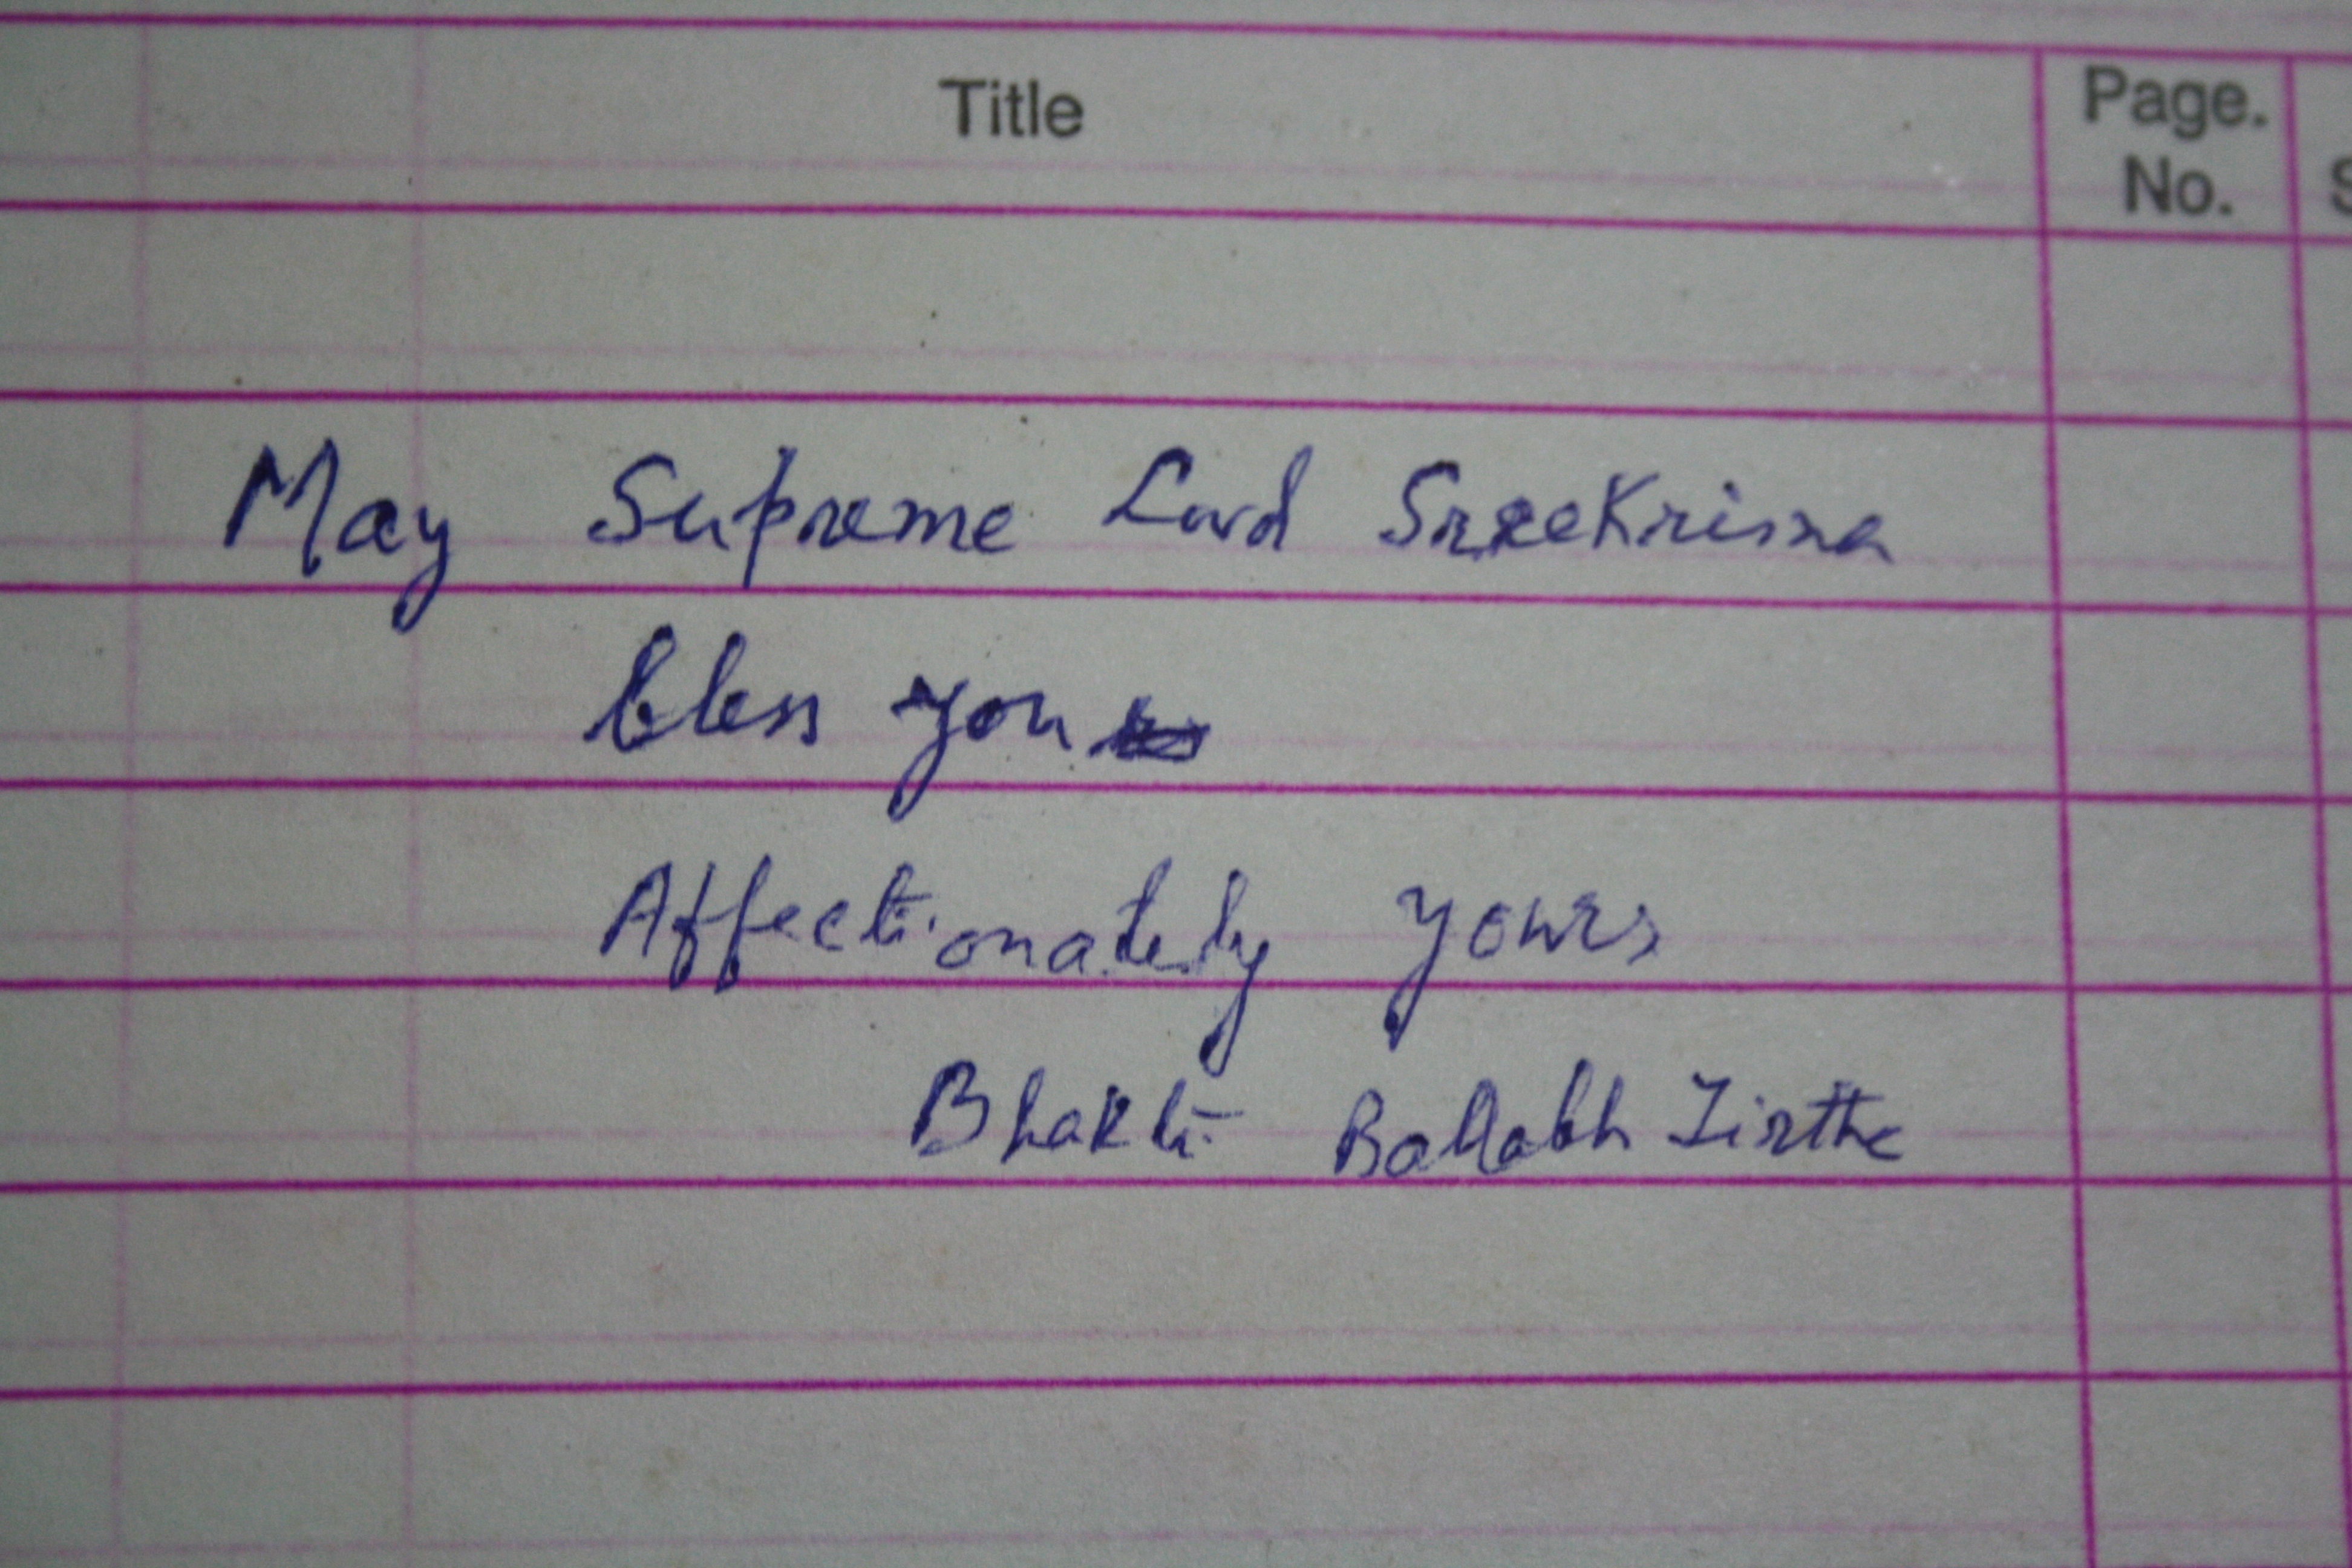 Title
Page.
No.
May Supreme Lord SreeKrisna
bless you
Affectionately yours
Bhakti Ballabh Tirtha